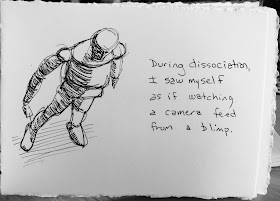 During dissociation,
I saw myself
as if watching
a camera feed
from a blimp.